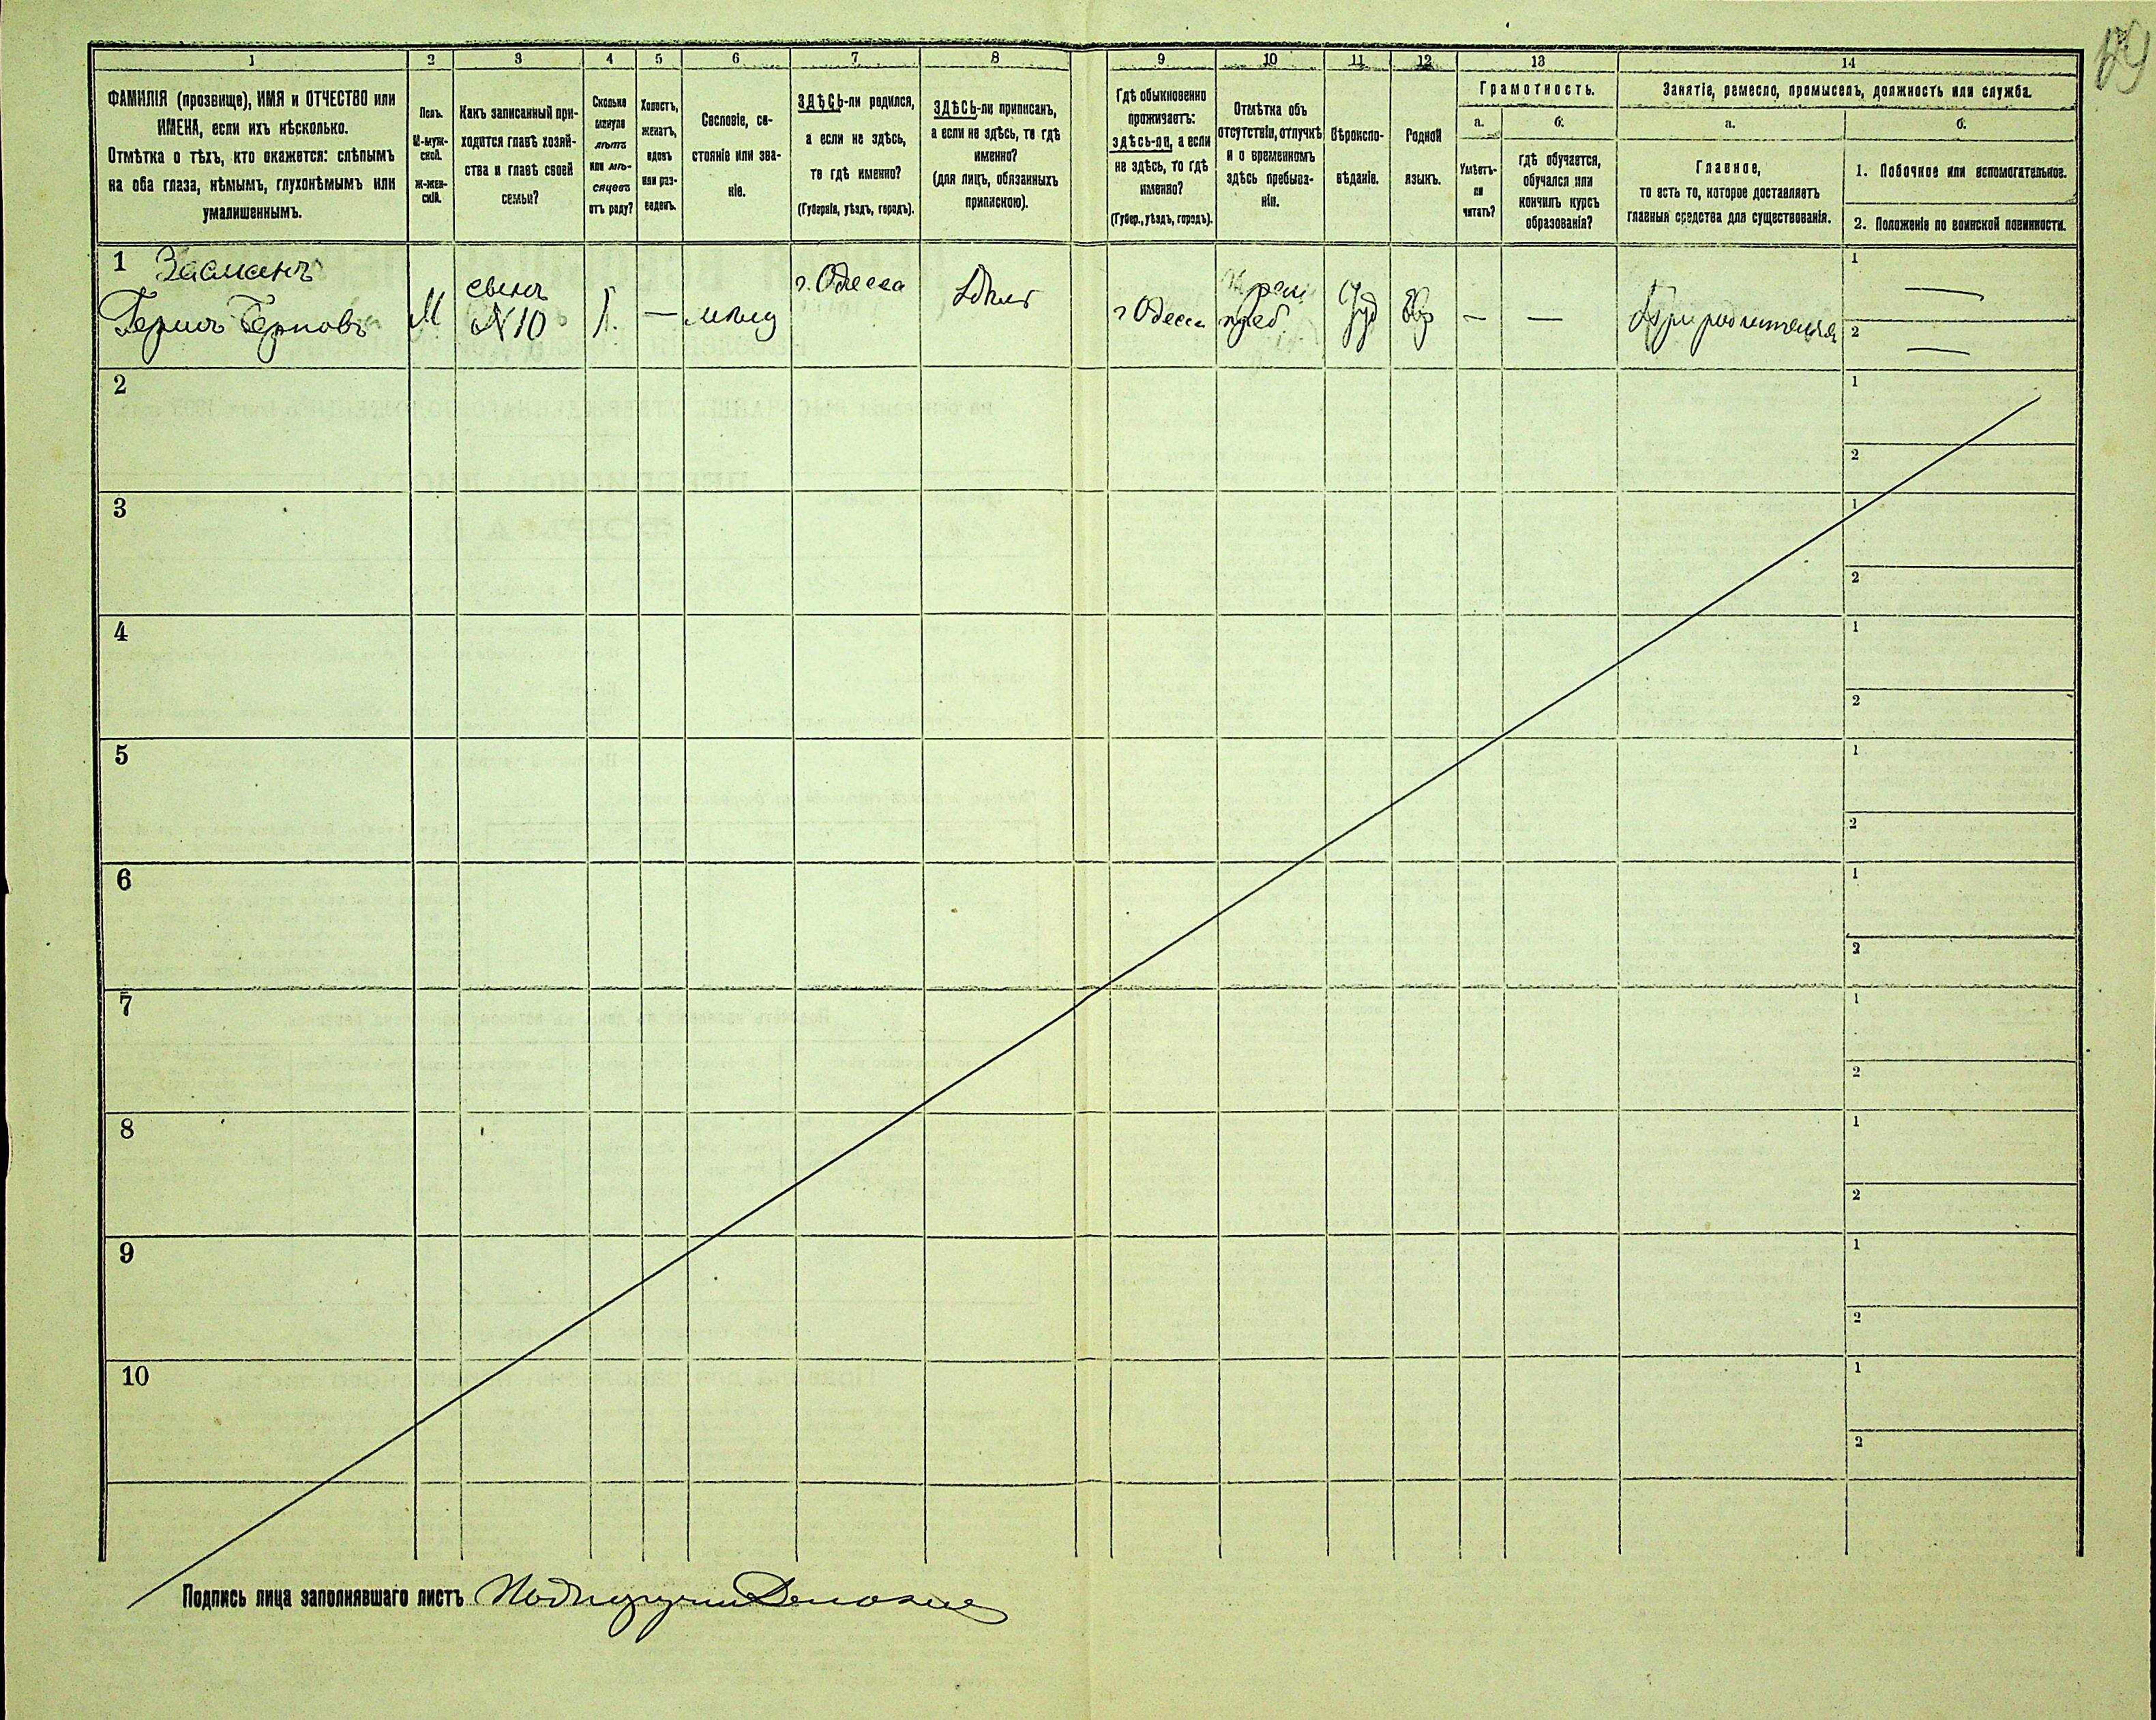 1 2 3 4 5 6 7 8 9 10 11 12 13 14
ФАМИЛІЯ (прозвище), ИМЯ и ОТЧЕСТВО или
ИМЕНА, если ихъ нѣсколько.
Отмѣтка о тѣхъ, кто окажется: слѣпымъ
на оба глаза, нѣмымъ, глухонѣмымъ или
умалишеннымъ.
Полъ.
М-муж-
ской.
Ж-жен-
скій.
Какъ записанный при-
ходится главѣ хозяй-
ства и главѣ своей
семьи?
Сколько
минуло
лѣтъ
или мѣ-
сяцевъ
отъ роду?
Холостъ,
женатъ,
вдовъ
или раз-
веденъ.
Сословіе, со-
стояніе или зва-
ніе.
ЗДѢСЬ-ли родился,
а если не здѣсь,
то гдѣ именно?
(Губернія, уѣздъ, городъ).
ЗДѢСЬ-ли приписанъ,
а если не здѣсь, то гдѣ
именно?
(для лицъ, обязанныхъ
припискою).
Гдѣ обыкновенно
проживаетъ:
здѣсь-ли, а если
не здѣсь, то гдѣ
именно?
(Губер., уѣздъ, городъ).
Отмѣтка объ
отсутствіи, отлучкѣ
и о временномъ
здѣсь пребыва-
ніи.
Вѣроиспо-
вѣданіе.
Родной
языкъ.
Грамотность.
а.
Умѣетъ-
ли
читать?
б.
гдѣ обучается,
обучался или
кончилъ курсъ
образованія?
Занятіе, ремесло, промыселъ, должность или служба.
а.
Главное,
то есть то, которое доставляетъ
главныя средства для существованія.
б.
1. Побочное или вспомогательное.
2. Положеніе по воинской повинности.
1
М
№10
1.
—
г. Одесса
г Одесса
—
—
При родителяхъ
1 —
2 —
2
1
2
3
1
2
4
1
2
5
1
2
6
1
2
7
1
2
8
1
2
9
1
2
10
1
2
Подпись лица заполнявшаго листъ